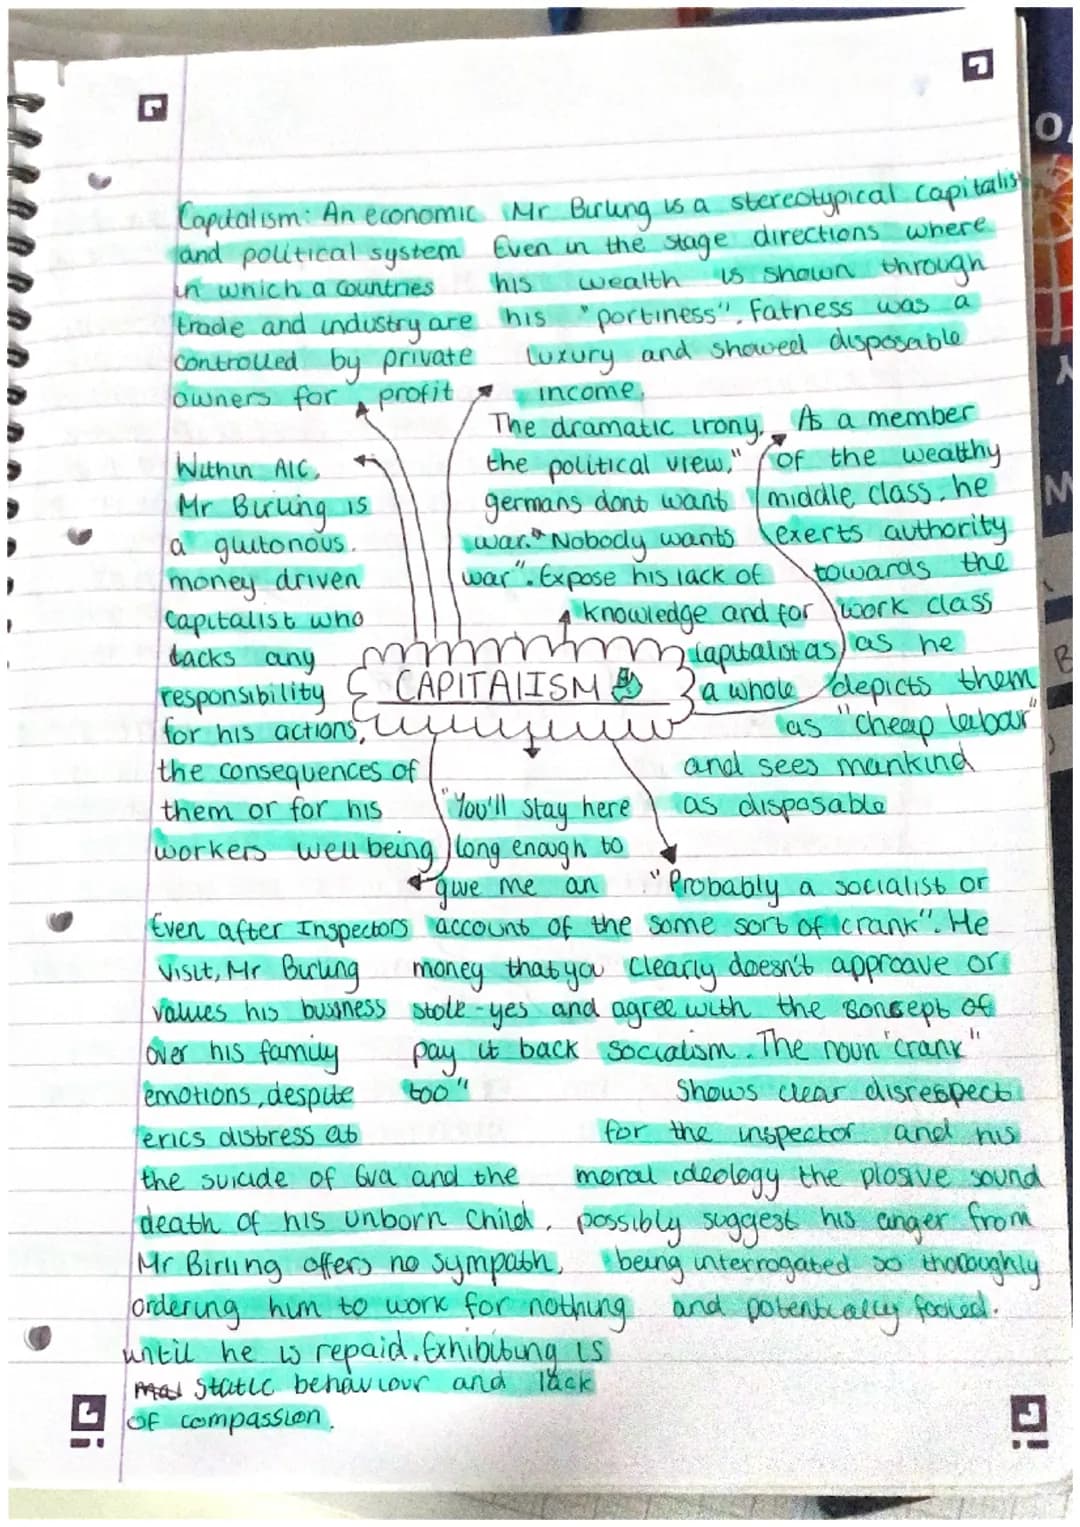 Capitalism: An economic
and political system
in which a countries
trade and industry are
controlled by private
owners for profit
Mr Birling is a stereotypical capitalis
Even in the stage directions where
his wealth is shown through
his "portiness". Fatness was a
luxury and showed disposable
income.
Within AIC,
Mr Birling is
a glutonous.
money driven
capitalist who
lacks any
responsibility
for his actions,
the consequences of
them or for his
workers wellbeing
The dramatic irony.
the political view,"
germans dont want
war." Nobody wants
war". Expose his lack of
knowledge and for
capitalist as
a whole
As a member
of the wealthy
middle class, he
exerts authority
towards the
work class
as he
depicts them
as "cheap labour"
and sees mankind
as disposable
CAPITALISM
Even after Inspectors
visit, Mr Birling
values his business
over his family
emotions, despite
erics distress at
the suicide of Eva and the
death of his unborn child.
Mr Birling offers no sympath,
ordering him to work for nothing
until he is repaid. Exhibiting is
static behaviour and lack
of compassion.
"You'll stay here
long enough to
give me an
account of the
money that you
stole - yes and
pay it back
too"
"Probably a socialist or
some sort of crank". He
clearly doesn't approave or
agree with the concept of
socialism. The noun "crank"
shows clear disrespect
for the inspector and his
moral ideology the plosive sound
possibly suggest his anger from
being interrogated so thoroughly
and potentically fooled.